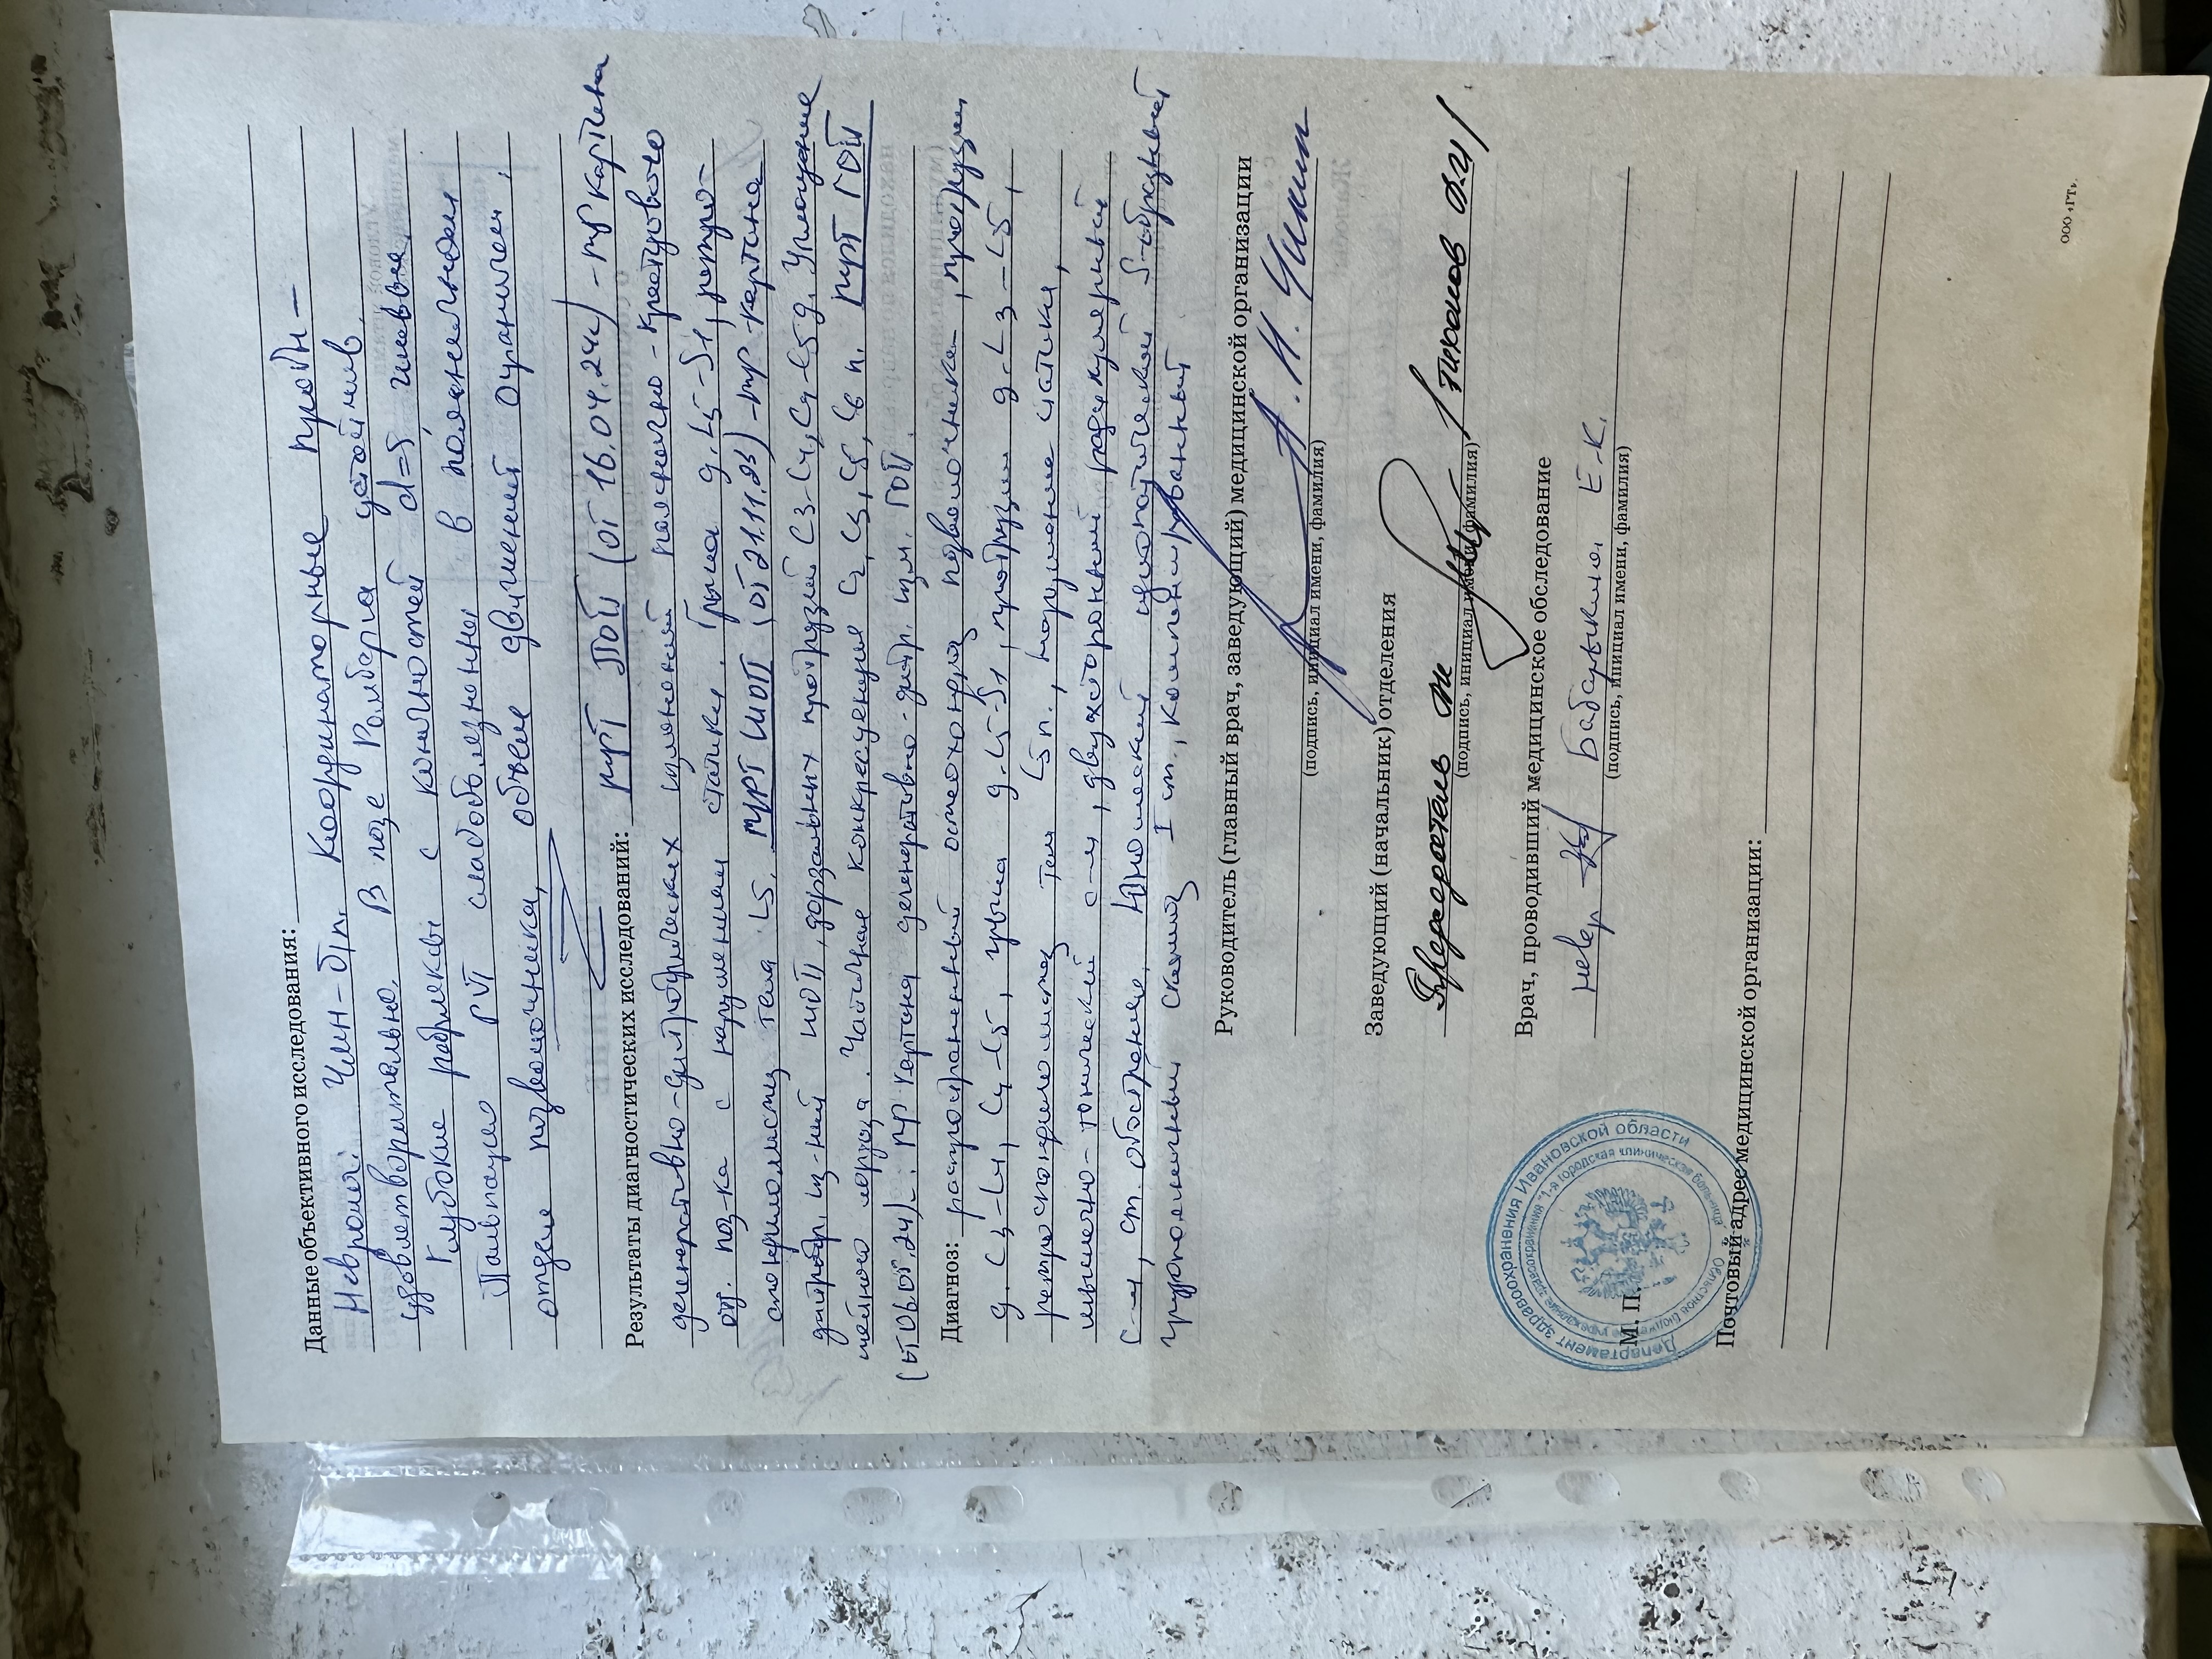 Данные объективного исследования:
Невролог. Чмн-б/п. Координаторные пробы-
удовлетворительно. В позе Ромберга устойчив.
Глубокие рефлексы с конечностей d=s живые.
Пальпация PVT слабоболезненны в пояснильном
отделе позвоночника, объем движений ограничен,
Результаты диагностических исследований: МРТ ПОП (от 16.04.24г) - МР картина
дегенеративно-дистрофических изменений пояснично-крестцового
отд. поз-ка с нарушением статики. Грыжа д. L5-S1, ретро-
спондилолистез тела L5. МРТ ШОП (от 21.11.23) - МР-картина
дистроф. из-ний ШОП, дорзальных протрузий C3-C4, C4-C5 д. Уплощение
шейного лордоза. Частичная конкресценция C2, C3, C5, C6 п. МРТ ГОП
(от 06.05.24). МР картина дегенеративно-дистр. изм. ГОП.
Диагноз: распространенный остеохондроз позвоночника, протрузии
д. C3-C4, C4-C5, грыжа д. L5-S1, протрузии д. L3-L5,
ретроспондилолистез тела L5 п., нарушение статики,
мышечно-тонический с-м, двухсторонний радикулярный
с-м, ст. обострения. Аномский идиопатический S-образный
грудопоясничный сколиоз I ст., компенсированный
Руководитель (главный врач, заведующий) медицинской организации
А. Н. Чикин
(подпись, инициал имени, фамилия)
Заведующий (начальник) отделения
Председатель ВК Тихонов
(подпись, инициал имени, фамилия)
Врач, проводивший медицинское обследование
невр Бабарыкина Е.К.
(подпись, инициал имени, фамилия)
М. П.
Департамент здравоохранения Ивановской области
Областное бюджетное учреждение здравоохранения "1-я городская клиническая больница"
Почтовый адрес медицинской организации: